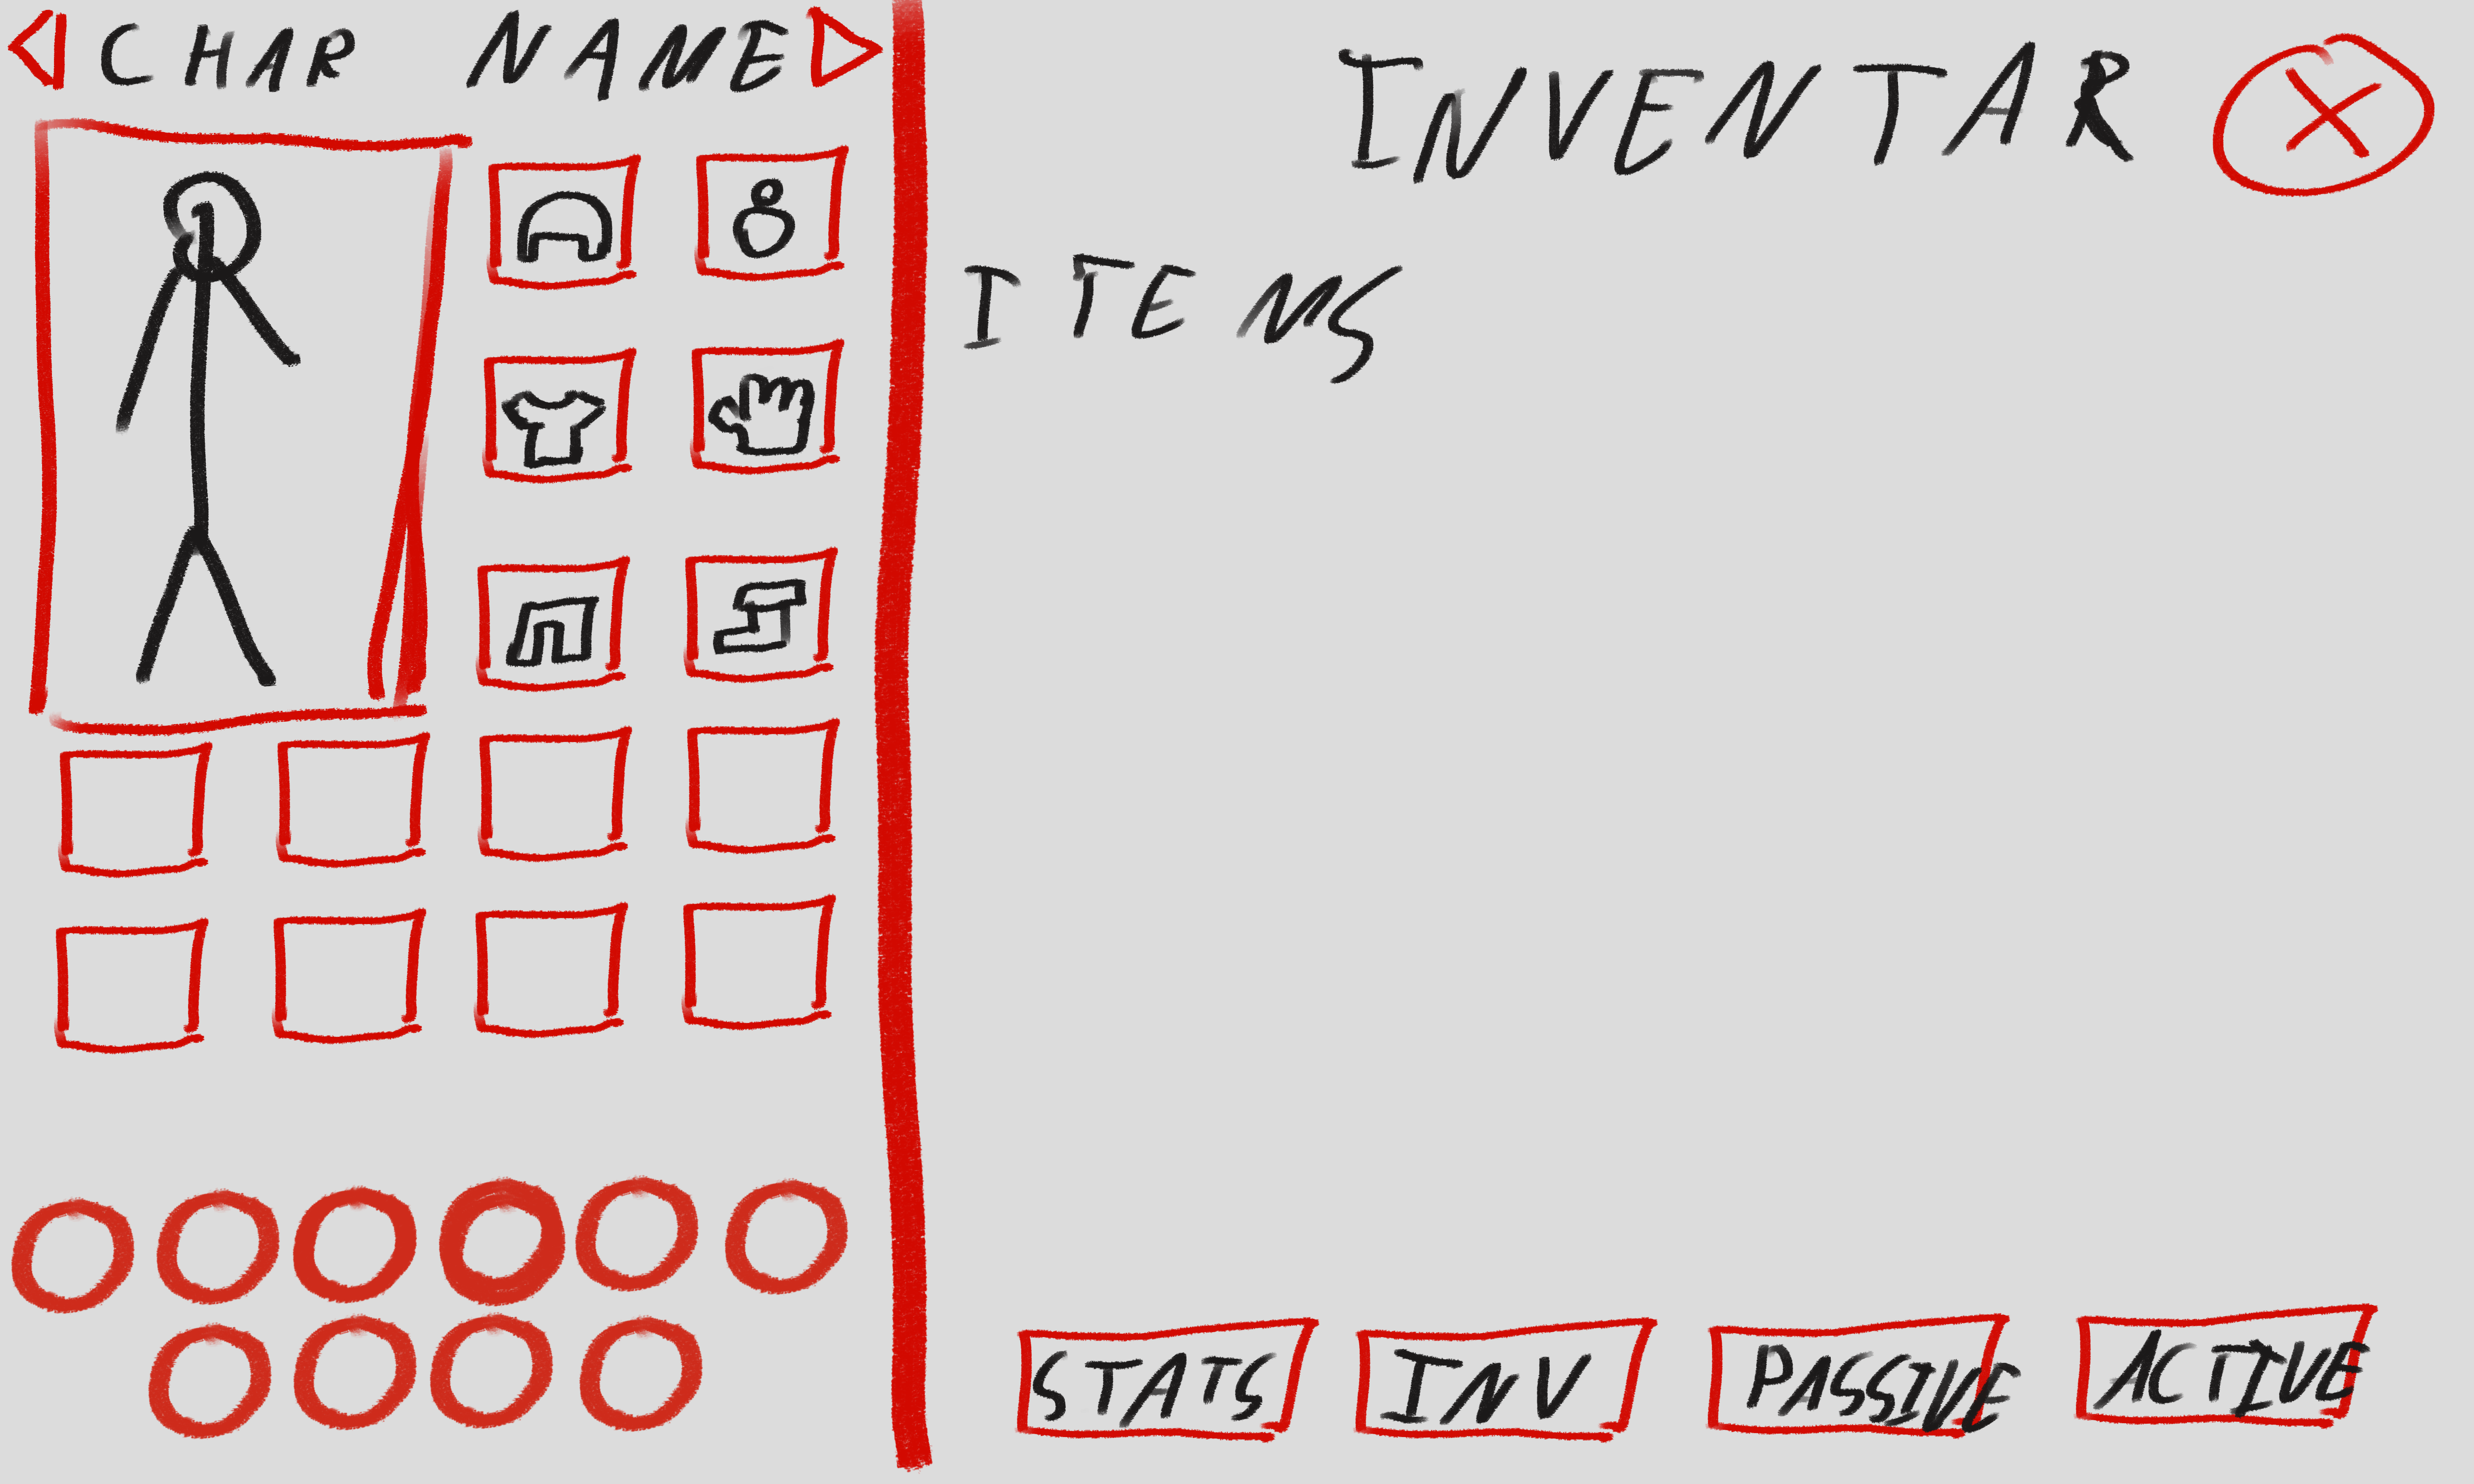 CHAR NAME
INVENTAR
X
ITEMS
STATS
INV
PASSIVE
ACTIVE